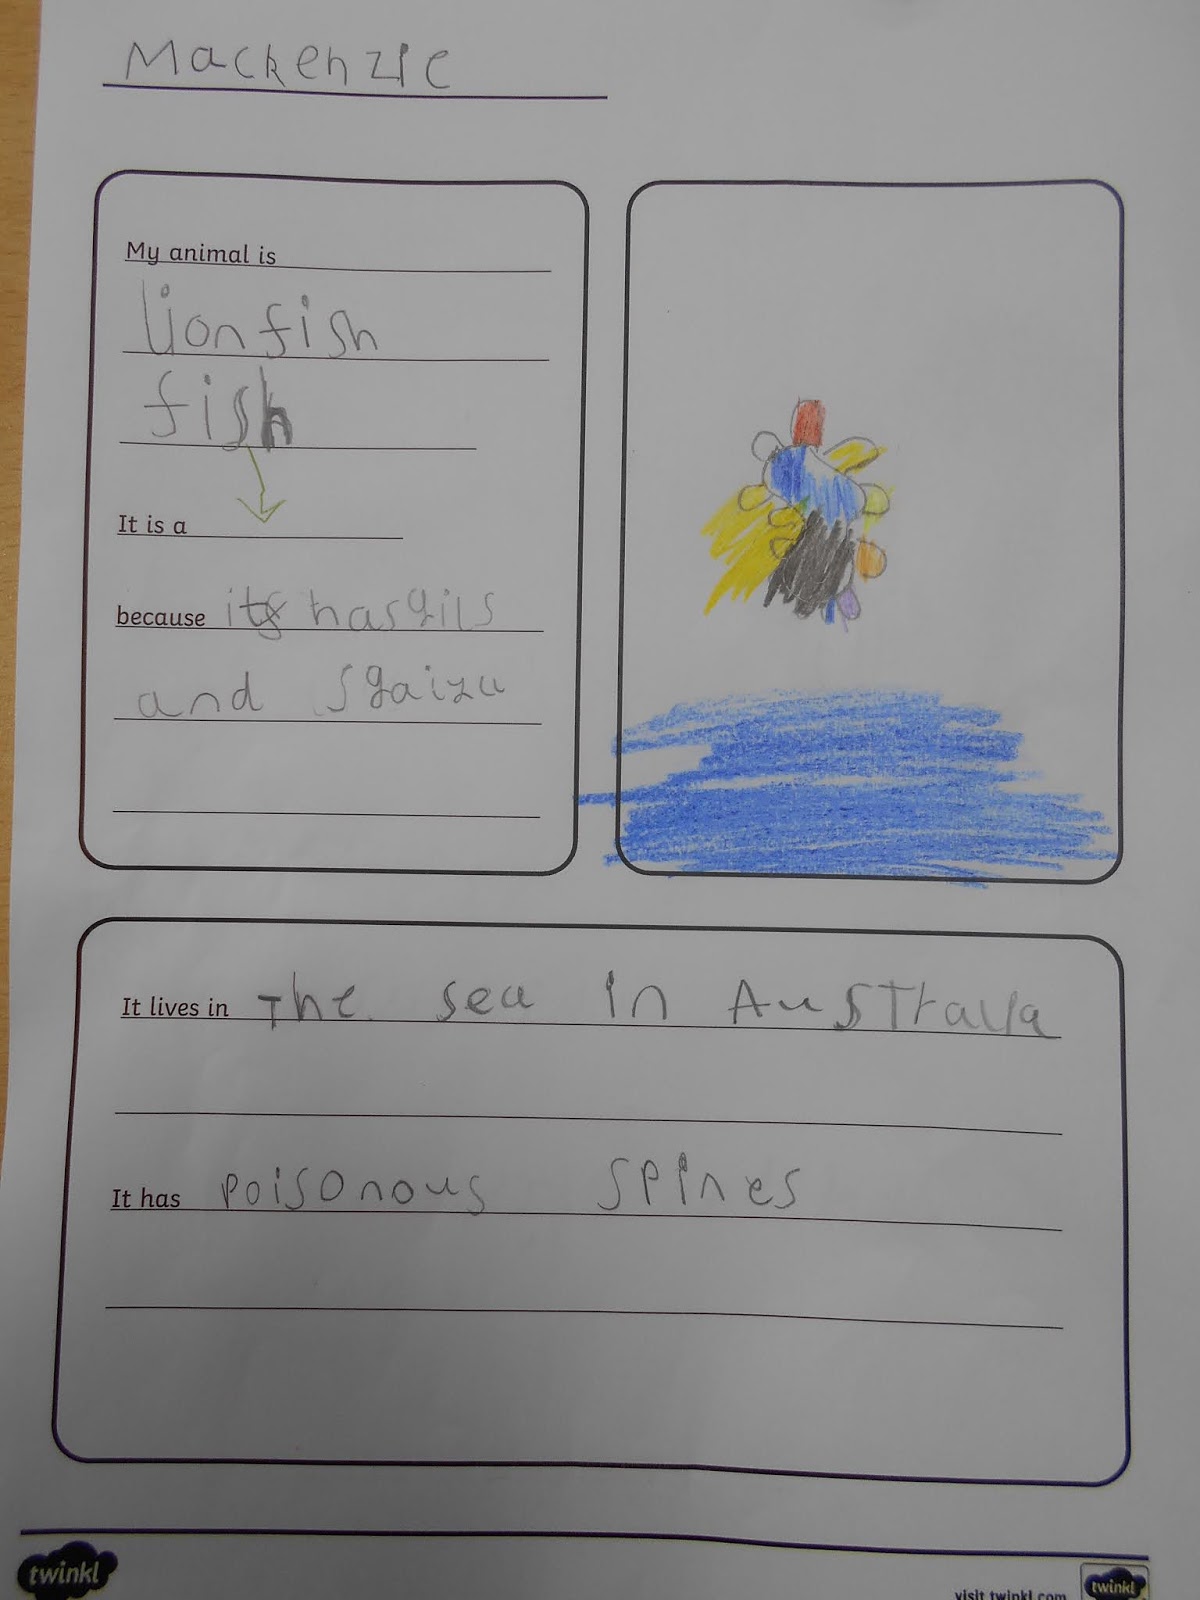 Mackenzie
My animal is
lionfish
fish
It is a
because its has gils
and sgaizu
It lives in The sea in Australia
It has poisonous spines
twinkl
visit twinkl.com twinkl